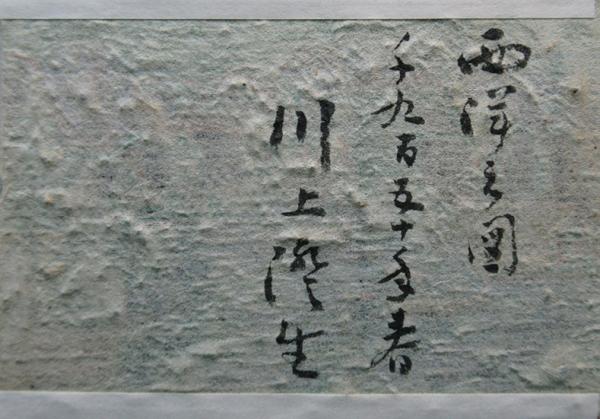 西洋之図
千九百五十年春
川上澄生